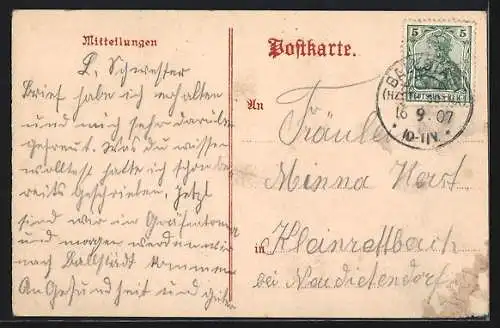 Mitteilungen
Postkarte.
5
L. Schwester
Brief habe ich erhalten
und mich sehr darüber
gefreut. Was du wissen
wolltest hatte ich schon be
reits geschrieben. Jetzt
sind wir in Gräfentonna
und morgen werden wir
nach Ballstädt kommen
An Gesundheit und
An
Fräulein
Minna
in Kleinrettbach
bei Neudietendorf
16 9. 07
* 10-11 N. *